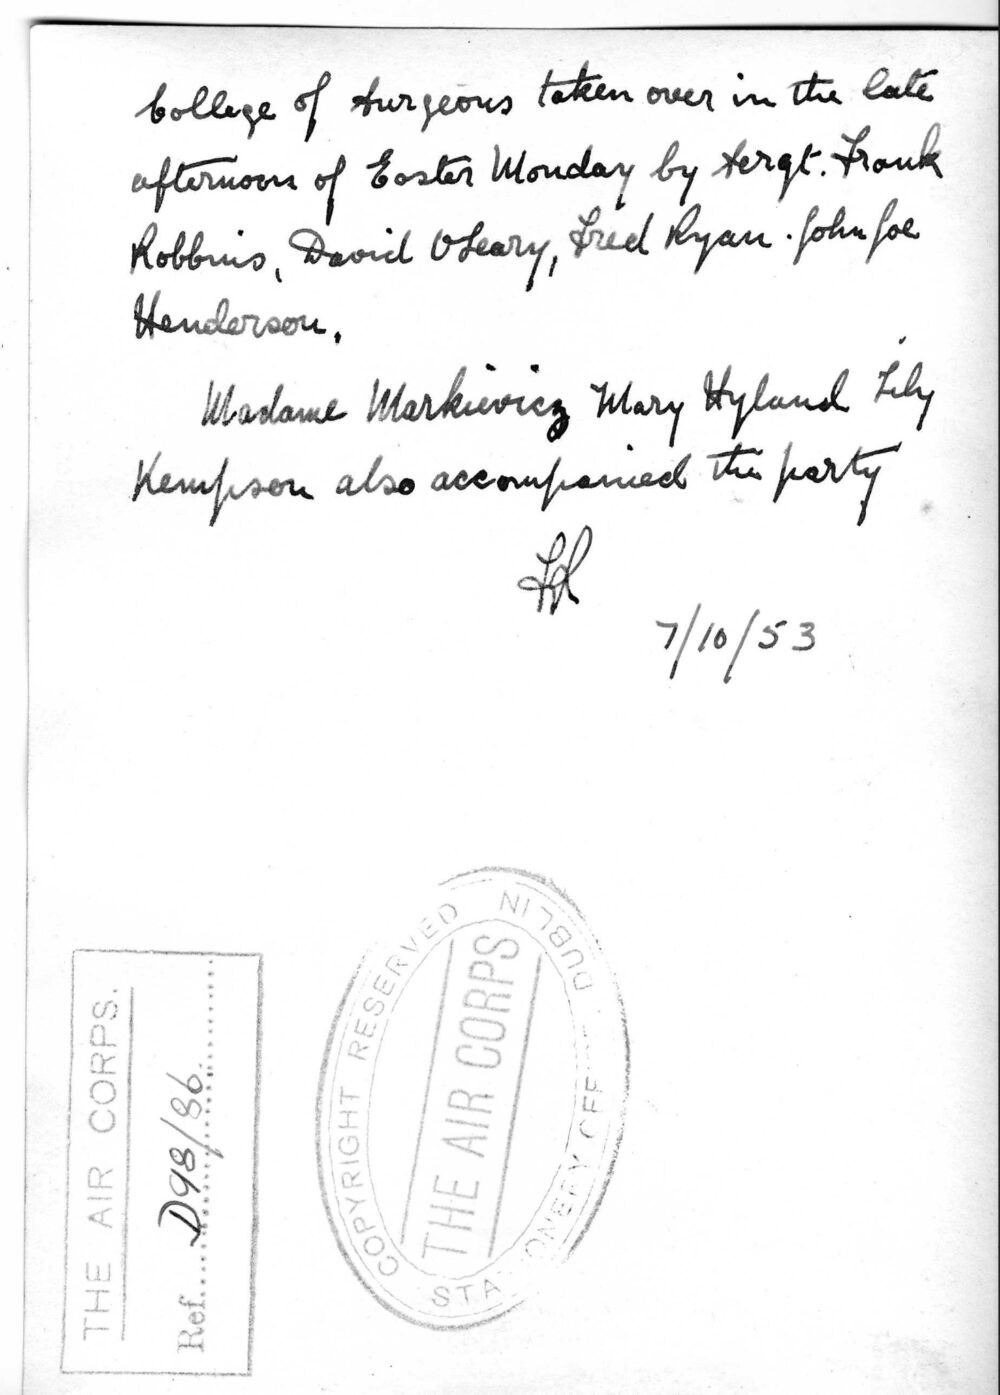 College of Surgeons taken over in the late
afternoon of Easter Monday by Sergt. Frank
Robbins, David O'Leary, Fred Ryan. John Joe
Henderson.
Madame Markievicz Mary Hyland Lily
Kempson also accompanied the party
7/10/53
THE AIR CORPS.
Ref. D98/86
COPYRIGHT RESERVED
THE AIR CORPS
DUBLIN